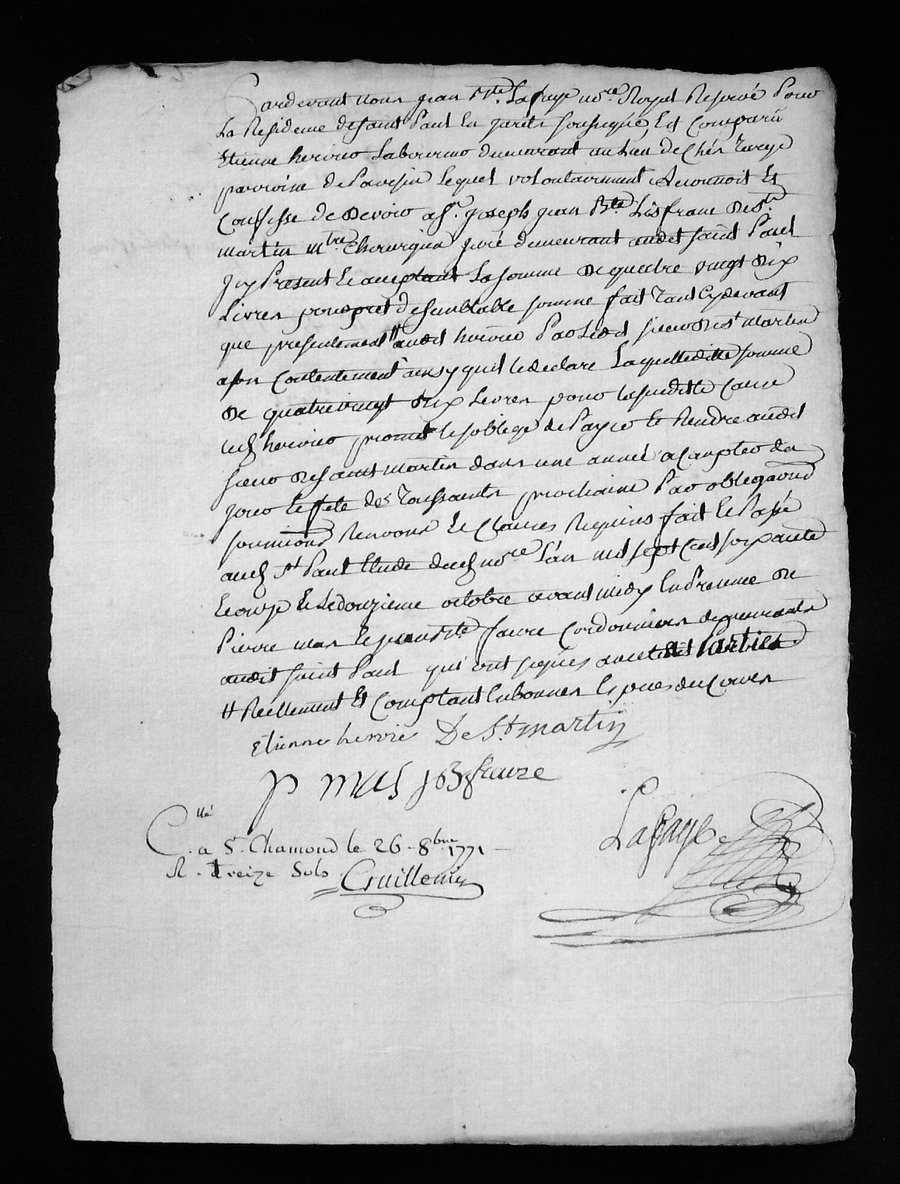 Pardevant nous jean Bte. Lafaye nore. Royal Reservé Pour
La Residence de saint Paul En jarêts soussigné Est Comparu
Etienne hervier Laboureur demeurant au Lieu de
parroisse de Pavesin Lequel volontairement Reconnoit Et
Confesse de devoir a sr. joseph jean Bte. Lisfranc De st.
martin mtre. Chirurgien juré demeurant audit saint Paul
jcy Present Et acceptant La somme de quatre vingt dix
Livres pour pret de semblable somme fait Tant Cy devant
que presentement # audit hervier Par Ledit sieur De st martin
a son Contentement ainsy quil le declare Laquelleditte somme
de quatrevingt dix Livres pour la susditte Cause
led. hervier promet Et soblige de Payer Et Rendre audit
sieur de saint martin dans une année a Compter du
jour Et fête des Toussaints prochaine Par obligaõns
soumissions Renvons Et Clauses Requises fait Et Passé
aud. st Paul Etude dud. nore. L'an mil sept Cent soixante
Et onze Et Le douzieme octobre avant midy En Presence de
Pierre mas Et faure Cordonniers demeurants
audit saint Paul qui ont signés avec les Parties
# Reellement Et Comptant En bonnes Espèces du Cours
etienne hervié De St. martin
p mas j B faure
Lafaye
Cllé. a St. Chamond le 26 8bre 1771
R. treize Sols
Guillemin